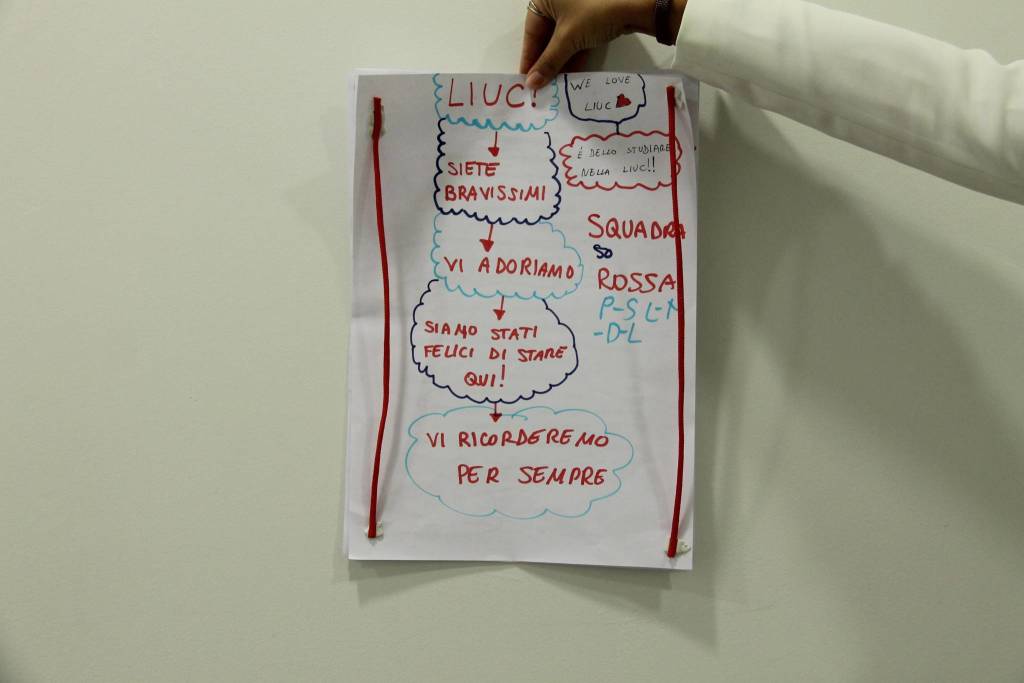 LIUC!
SIETE
BRAVISSIMI
VI ADORIAMO
SIAMO STATI
FELICI DI STARE
QUI!
VI RICORDEREMO
PER SEMPRE
WE LOVE
LIUC
É BELLO STUDIARE
NELLA LIUC!!
SQUADRA
SO
ROSSA
P-S L-M
-D-L